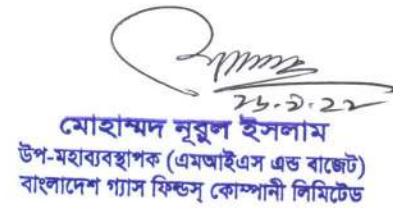 ২৬.৯.২২
মোহাম্মদ নূরুল ইসলাম
উপ-মহাব্যবস্থাপক (এমআইএস এন্ড বাজেট)
বাংলাদেশ গ্যাস ফিল্ডস্ কোম্পানী লিমিটেড